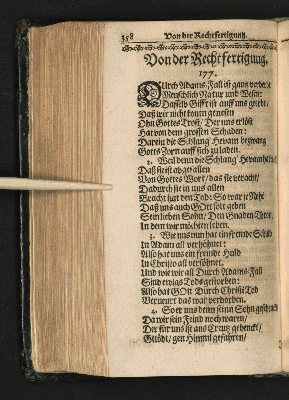 358 Von der Rechtfertigung.
Von der Rechtfertigung.
177.
Durch Adams Fall ist gantz verderbt
Menschlich Natur und Wesen
Dasselb Gifft ist auff uns geerbt
Daß wir nicht kontn genesen
Ohn Gottes Trost / Der uns erlöst
Hat von dem grossen Schaden:
Darein die Schlang Hevam bezwang
Gotts Zorn auff sich zuladen.
2. Weil denn die Schlang Hevam hat
Daß sie ist abgefallen
Von Gottes Wort / das sie veracht /
Dadurch sie in uns allen
Bracht hat den Tod: So war je Noht
Daß uns auch Gott solt geben
Sein lieben Sohn / Den Gnaden Thron,
In dem wir möchten leben.
3. Wie uns nun hat ein frembde Schuld
In Adam all verhöhnet:
Also hat uns ein frembde Huld
In Christo all versöhnet.
Und wie wir all Durch Adams Fall
Sind ewigs Tods gestorben:
Also hat GOtt Durch Christi Tod
Verneurt das war verdorben.
4. So er uns denn seinn Sohn geschenckt
Da wir sein Feind noch waren /
Der für uns ist ans Creutz gehenckt /
Getödt / gen Himmel gefahren /